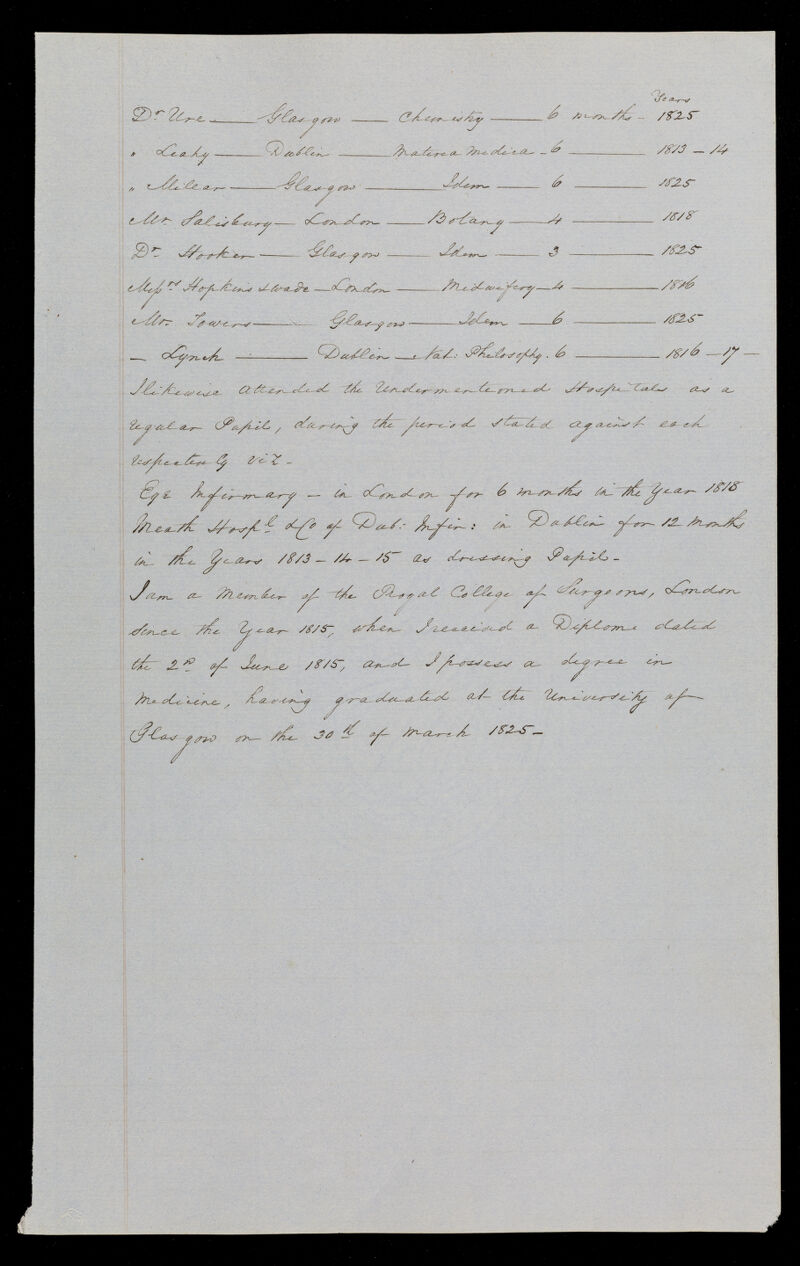 Years
Dr Ure — Glasgow — Chemistry — 6 months - 1825
" Leahy — Dublin — Materia Medica - 6 — 1813 - 14
" Millar — Glasgow — Idem — 6 — 1825
Mr Salisbury — London — Botany — 4 — 1818
Dr Hooker — Glasgow — Idem — 3 — 1825
Messrs Hopkins & Wade — London — Midwifery — 4 — 1816
Mr Towers — Glasgow — Idem — 6 — 1825
— Lynch — Dublin — Nat: Philosophy. 6 — 1816 - 17 -
I likewise attended the Undermentioned Hospitals as a
regular Pupil, during the period stated against each
respectively viz -
Eye Infirmary - in London for 6 months in the Year 1818
Meath Hospl & Co of Dub: Infir: in Dublin for 12 Months
in the Years 1813 - 14 - 15 as dressing Pupil -
I am a Member of the Royal College of Surgeons, London
since the Year 1815, when I received a Diploma dated
the 2nd of June 1815, and I possess a degree in
Medicine, having graduated at the University of
Glasgow on the 30th of March 1825 -